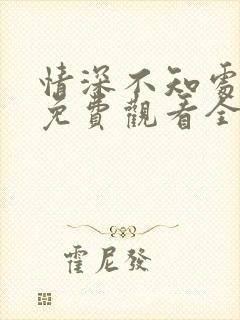 情深不知處
免費觀看全
霍尼發